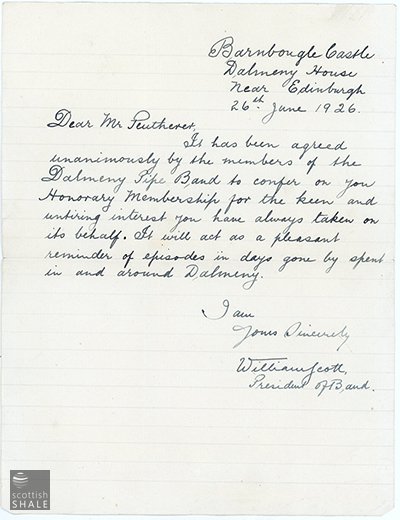 Barnbougle Castle
Dalmeny House
Near Edinburgh
26th June 1926.
Dear Mr Peutherer,
It has been agreed
unanimously by the members of the
Dalmeny Pipe Band to confer on you
Honorary Membership for the keen and
untiring interest you have always taken on
its behalf. It will act as a pleasant
reminder of episodes in days gone by spent
in and around Dalmeny.
I am
Yours Sincerely
William Scott,
President of Band.
scottish
SHALE